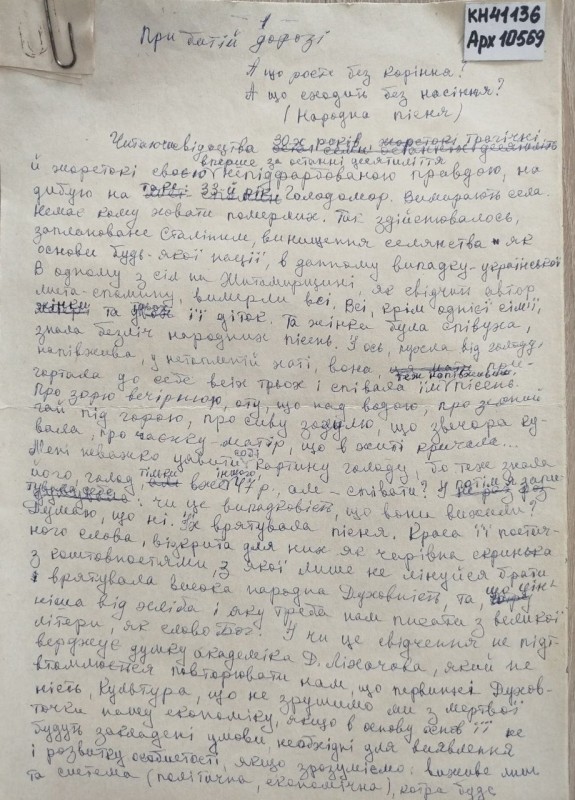 КН41136
Арх10569
1
При битій дорозі
А що росте без коріння?
А що сходить без насіння?
(Народна пісня)
Читаючи свідоцтва 30х років, жорстокі трагічні
й жорстокі своєю непідфарбованою правдою, на-
вперше за останні десятиліття
дибую на 33-й рік голодомор. Вимирають села.
Немає кому ховати померлих. Так здійснювалось,
заплановане Сталіним, винищення селянства як
основи будь-якої нації, в данному випадку - української
В одному з сіл на Житомирщині, як свідчить автор
листа-спомину, вимерли всі. Всі, крім однієї сім'ї,
жінки та її діток. Та жінка була співуча,
знала безліч народних пісень. І ось, пухла від голоду,
напівжива, у нетопленій хаті, вона при-
теж напівживих
гортала до себе всіх трьох і співала їм пісень.
Про зорю вечірнюю, оту, що над водою, про зелений
гай під горою, про сиву зозулю, що звечора ку-
вала, про чаєчку-матір, що в житі кричала...
Мені неважко уявити собі картину голоду, бо теж знала
його, голод, тільки вже іншого 47 р, але - співати? І потім я запи-
тувала себе: чи це випадковість, що вони вижили?
Думаю, що ні. Їх врятувала пісня. Краса її поетич-
ного слова, відкрита для них як чарівна скринька
з коштовностями, з якої лише не лінуйся брати
врятувала висока народна Духовність, та, що цін-
ніша від хліба і яку треба нам писати з великої
літери, як слово Бог. І чи це свідчення не підт-
верджує думку академіка Д. Ліхачова, який не
втомлюється повторювати нам, що первинні Духов-
ність, Культура, що не зрушимо ми з мертвої
точки нашу економіку, якщо в основу основ її не
будуть закладені умови, необхідні для виявлення
і розвитку особистості, якщо зрозуміємо: виживе лиш
та система (політична, економічна), котра буде